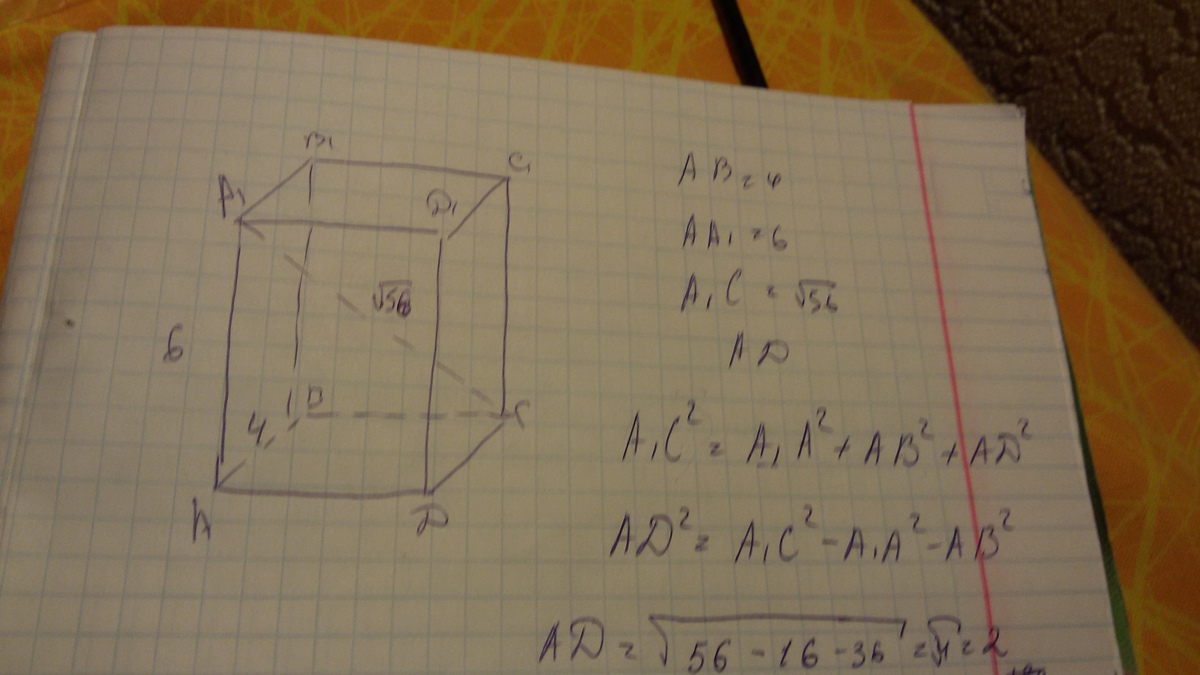 B₁
C₁
A₁
D₁
√56
6
B
4
C
A
D
AB = 4
AA₁ = 6
A₁C = √56
AD
A₁C² = A₁A² + AB² + AD²
AD² = A₁C² - A₁A² - AB²
AD = √56 - 16 - 36 = √4 = 2